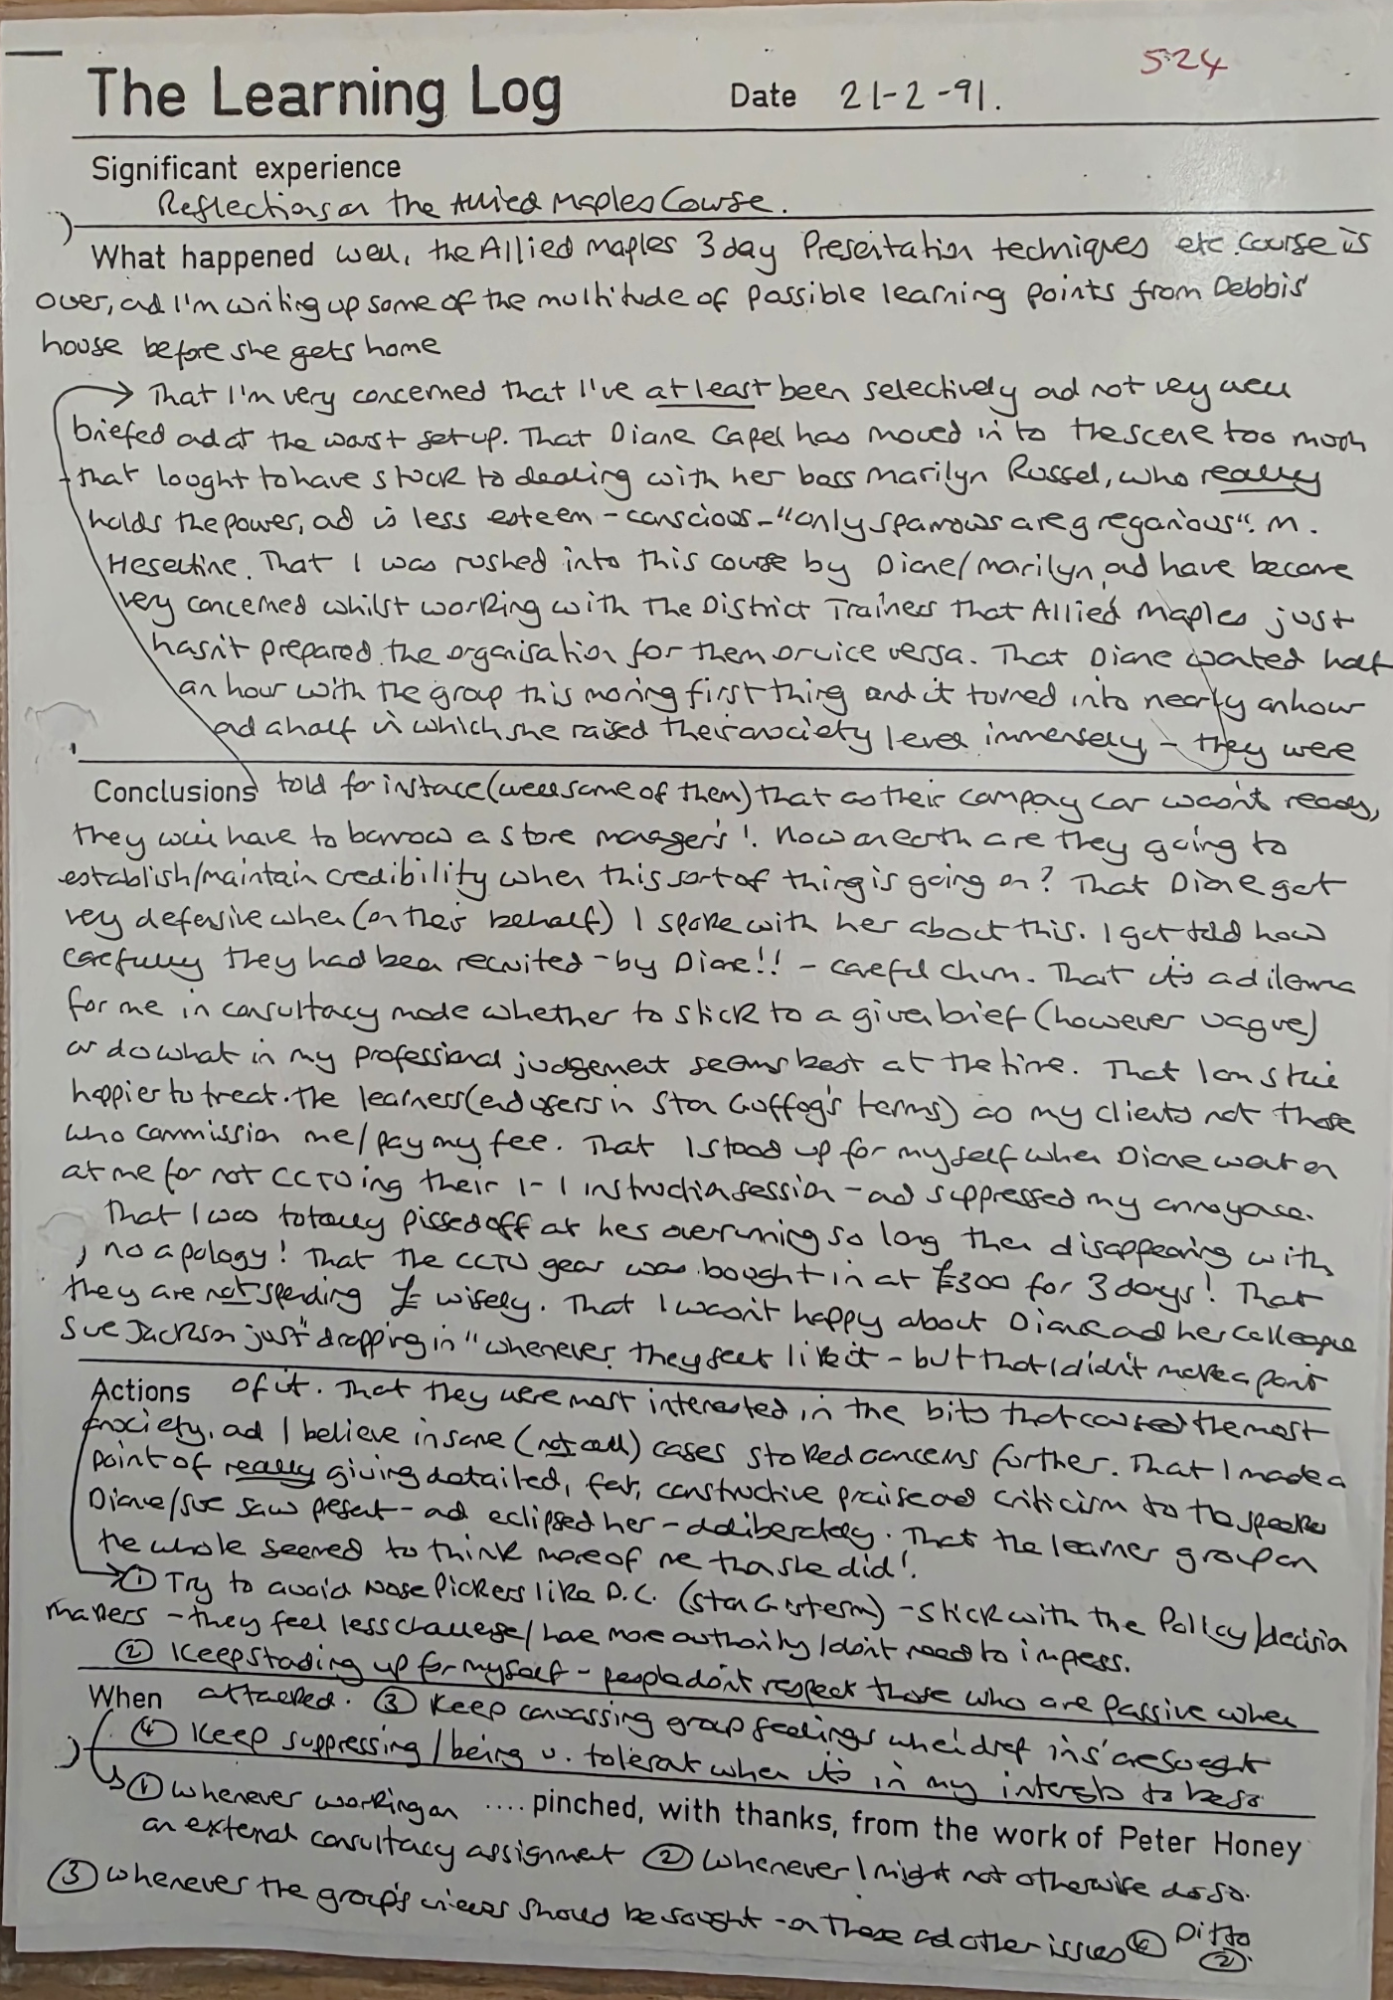 524
The Learning Log Date 21-2-91.
Significant experience
Reflections on the Allied Maples Course.
What happened well, the Allied Maples 3 day Presentation techniques etc. course is
over, ad I'm writing up some of the multitude of possible learning points from Debbis'
house before she gets home
→ That I'm very concerned that I've at least been selectively ad not very well
briefed ad at the worst set up. That Diane Capel has moved in to the scene too much
- that I ought to have stuck to dealing with her boss Marilyn Russel, who really
holds the power, ad is less esteem-conscious - "only sparrows are gregarious". M.
Heseltine. That I was rushed into this course by Diane/Marilyn, ad have become
very concerned whilst working with the District Trainers that Allied Maples just
hasn't prepared the organisation for them or vice versa. That Diane wanted half
an hour with the group this morning first thing and it turned into nearly an hour
ad a half in which she raised their anxiety level immensely - they were
Conclusions told for instace (well some of them) that as their company car wasn't ready,
they will have to borrow a store manager's! How on earth are they going to
establish/maintain credibility when this sort of thing is going on? That Diane got
very defensive when (on their behalf) I spoke with her about this. I got told how
carefully they had been recruited - by Diane!! - careful chum. That it's a dilema
for me in consultacy mode whether to stick to a given brief (however vague)
or do what in my professional judgement seems best at the time. That I am still
happier to treat the learners (end users in Stan Guffog's terms) as my clients not those
who commission me/pay my fee. That I stood up for myself when Diane went on
at me for not CCTVing their 1-1 instruction session - ad suppressed my annoyace.
That I was totally pissed off at her overrunning so long then disappearing with
, no apology! That the CCTV gear was bought in at £300 for 3 days! That
they are not spending £ wisely. That I wasn't happy about Diane ad her colleague
Sue Jackson just "dropping in" whenever they feel like it - but that I didn't make a point
Actions of it. That they were most interested in the bits that caused the most
anxiety, ad I believe in some (not all) cases stoked concerns further. That I made a
point of really giving detailed, fair, constructive praise ad criticism to the speaker
Diane/Sue saw present - ad eclipsed her - deliberately. That the learner group on
the whole seemed to think more of me tha she did!
→ ① Try to avoid Nose Pickers like D.C. (Stan G's term) - stick with the Policy/decision
makers - they feel less challenge/have more authority/don't need to impress.
② Keep stading up for myself - people don't respect those who are passive when
When attacked. ③ Keep canvassing group feelings when dref ins' are sought
④ Keep suppressing/being v. tolerat when it's in my interests to be so
→ ① Whenever working on .... pinched, with thanks, from the work of Peter Honey
an external consultacy assignment ② Whenever I might not otherwise do so.
③ Whenever the group's views should be sought - on these ad other issues ④ Ditto
②.